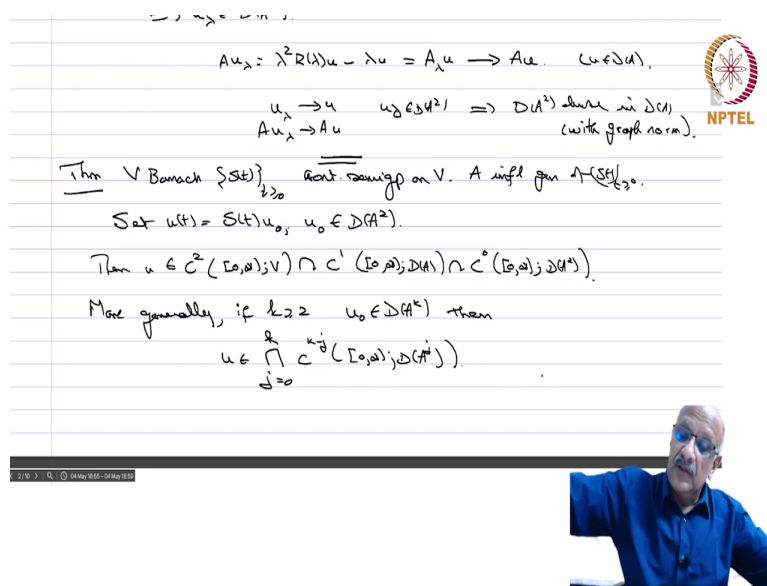 Au_λ = λ²R(λ)u - λu = A_λu → Au. (u∈D(A)).
u_λ → u u_λ ∈ D(A²) ⇒ D(A²) dense in D(A)
Au_λ → Au (with graph norm).
NPTEL
Thm V Banach {S(t)}_{t≥0} cont. semigp on V. A infl gen of {S(t)}_{t≥0}.
Set u(t) = S(t)u₀, u₀ ∈ D(A²).
Then u ∈ C²([0,∞);V) ∩ C¹([0,∞);D(A)) ∩ C⁰([0,∞);D(A²)).
More generally, if k≥2 u₀ ∈ D(A^k) then
u ∈ ∩_{j=0}^{k} C^{k-j}([0,∞);D(A^j)).
2/10 04 May 18:55 - 04 May 18:59